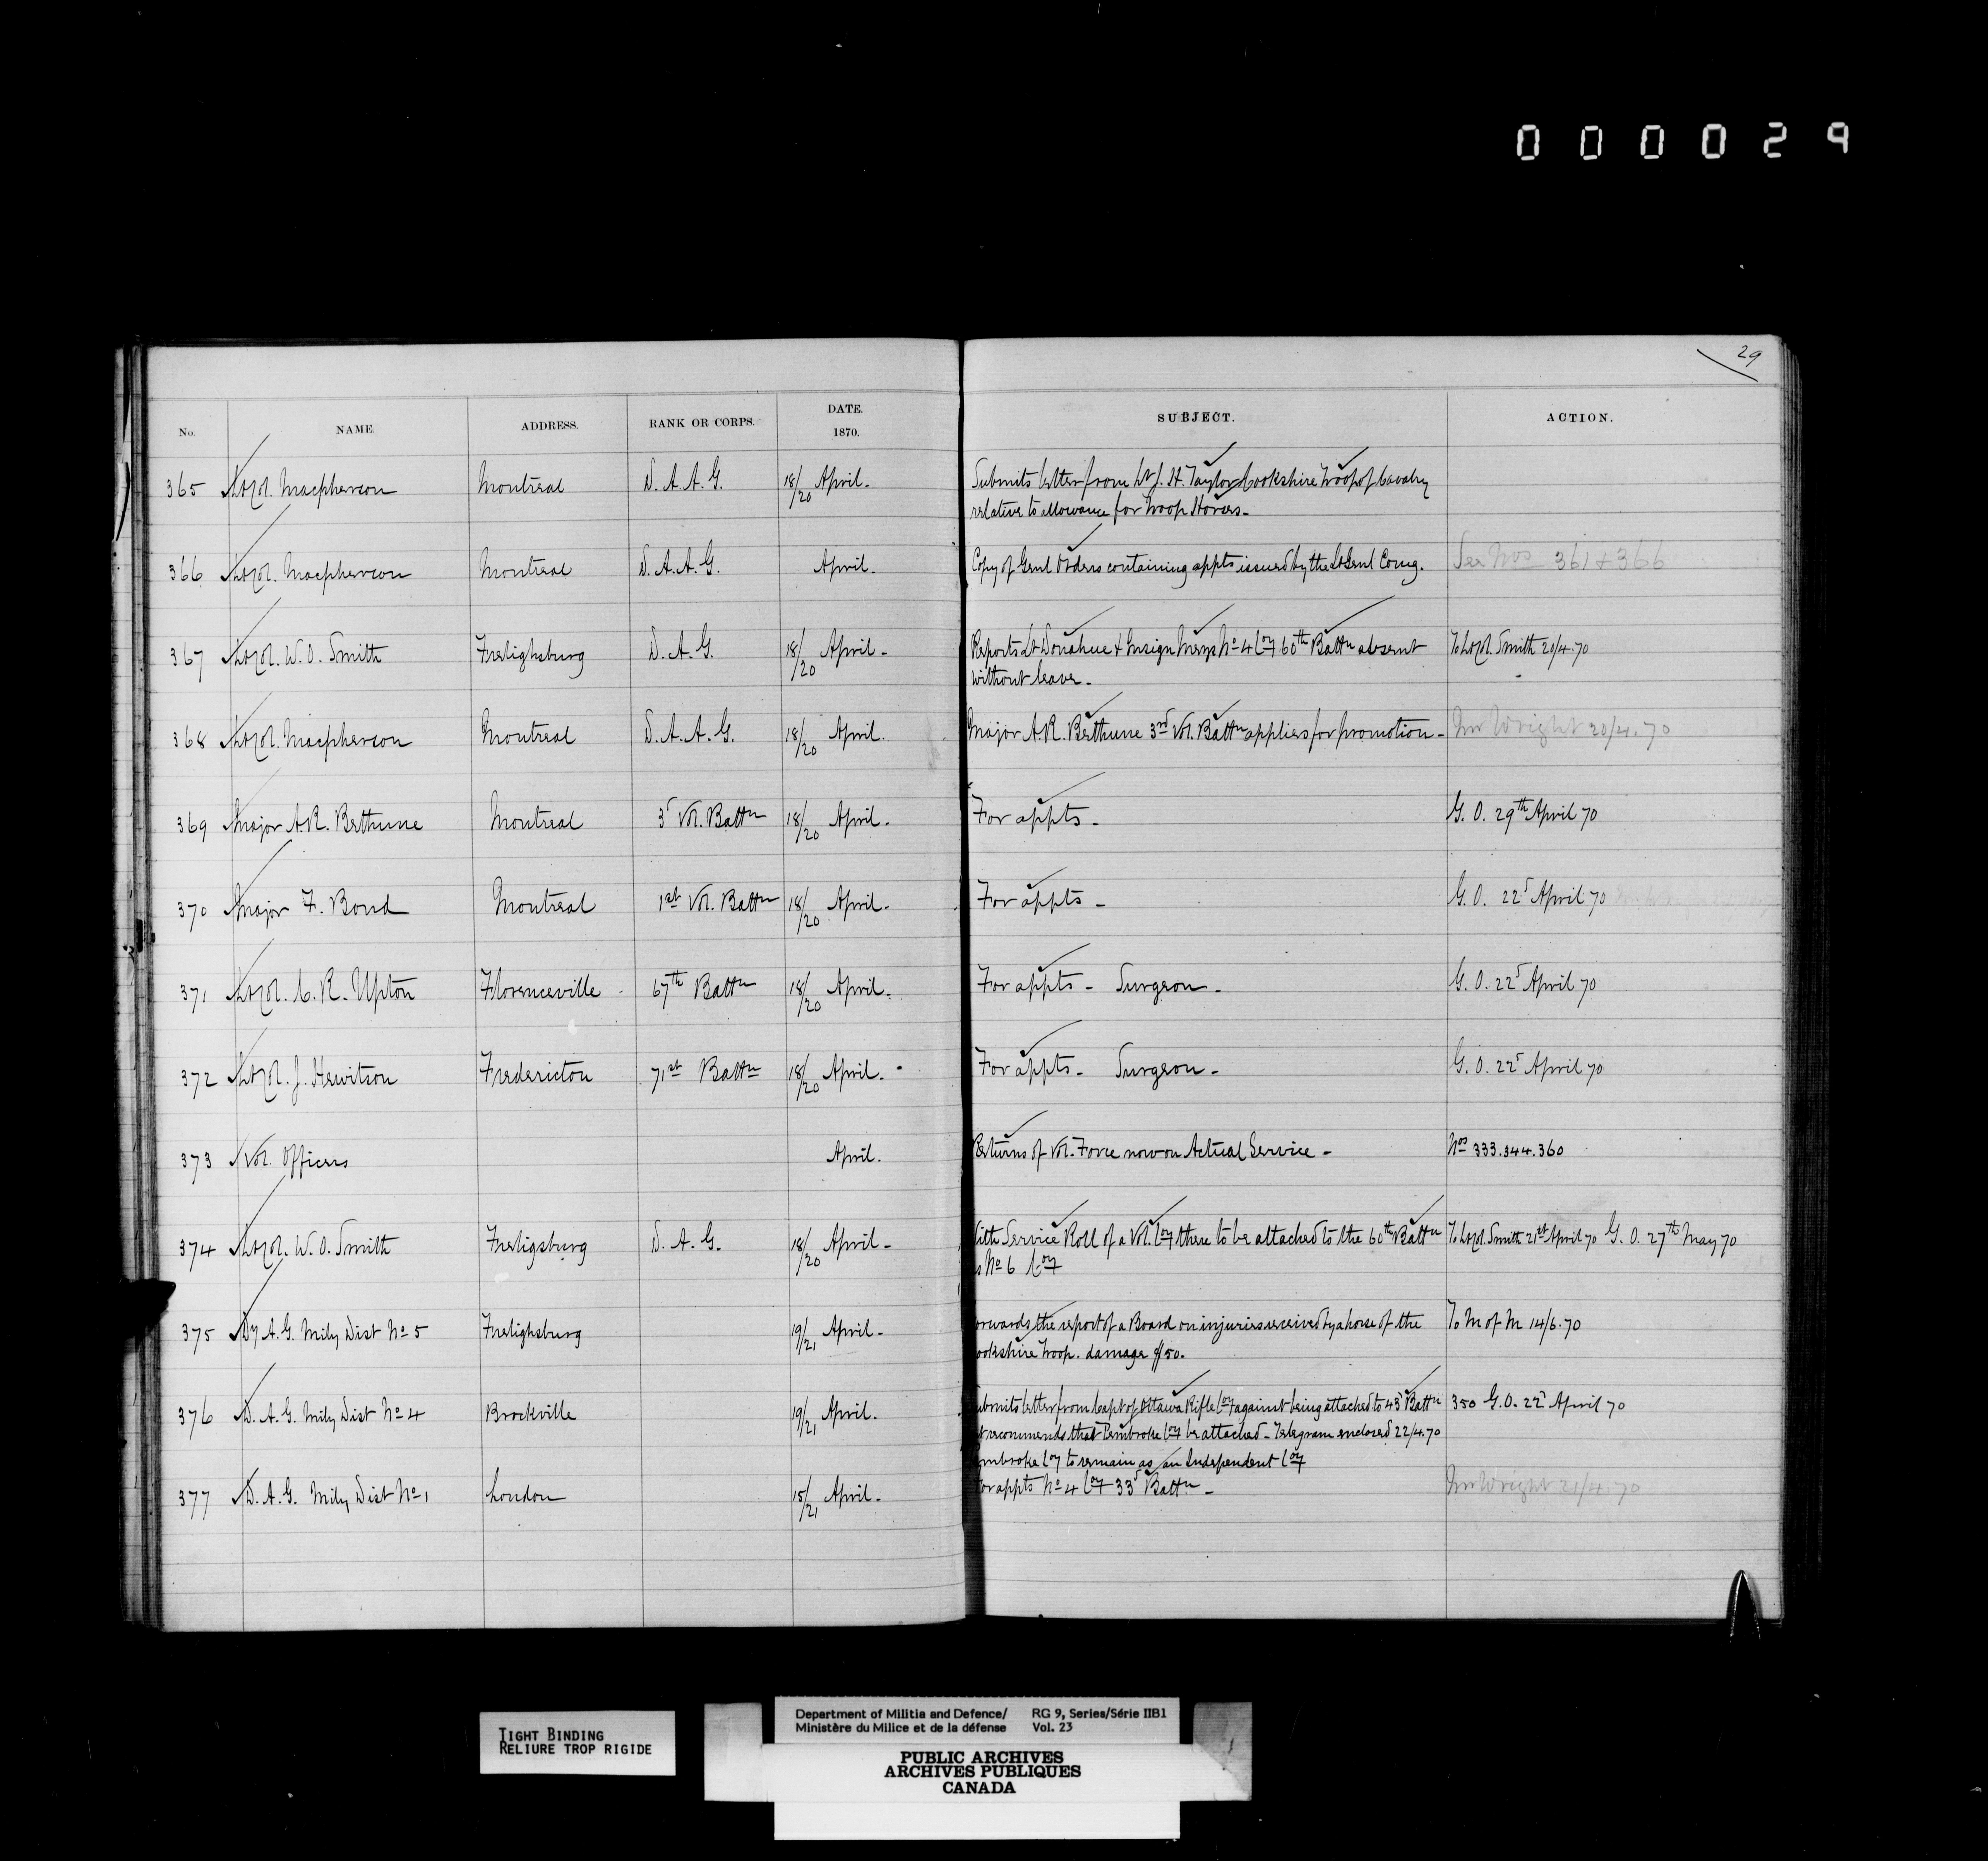 000029
29
No. NAME. ADDRESS. RANK OR CORPS. DATE. 1870. SUBJECT. ACTION.
365 Lt Col. Macpherson Montreal D. A. A. G. 18/20 April. Submits letter from Lt J. H. Taylor Cookshire Troop of Cavalry
relative to allowance for Troop Horses.
366 Lt Col. Macpherson Montreal D. A. A. G. April. Copy of Genl Orders containing appts issued by the Lt Genl Comg. See Nos 361 & 366
367 Lt Col. W. O. Smith Frelighsburg D. A. G. 18/20 April. Reports Lt Donahue & Ensign No 4 Coy 60th Battn absent To Lt Col. Smith 20/4.70
without leave.
368 Lt Col. Macpherson Montreal D. A. A. G. 18/20 April. Major A. R. Bethune 3rd Vol. Battn applies for promotion. Mr Wright 20/4.70
369 Major A. R. Bethune Montreal 3r Vol. Battn 18/20 April. For appts. G. O. 29th April 70
370 Major F. Bond Montreal 1st Vol. Battn 18/20 April. For appts. G. O. 22d April 70
371 Lt Col. C. R. Upton Florenceville 67th Battn 18/20 April. For appts. Surgeon. G. O. 22d April 70
372 Lt Col. J. Hewitson Fredericton 71st Battn 18/20 April. For appts. Surgeon. G. O. 22d April 70
373 Vol. Officers April. Returns of Vol. Force now on Actual Service. Nos 333.344.360
374 Lt Col. W. O. Smith Freligsburg D. A. G. 18/20 April. ith Service Roll of a Vol. Coy there to be attached to the 60th Battn To Lt Col. Smith 21st April 70 G. O. 27th May 70
s No 6 Coy
375 Dy A. G. Mily Dist No 5 Frelighsburg 19/21 April. orwards the report of a Board on injuries received by a horse of the To M of M 14/6.70
ookshire Troop. damage $50.
376 D. A. G. Mily Dist No 4 Brockville 19/21 April. ubmits letter from Capt of Ottawa Rifle Coy against being attached to 43d Battn 350 G. O. 22d April 70
t recommends that Pembroke Coy be attached. Telegram enclosed 22/4.70
embroke Coy to remain as an Independent Coy
377 D. A. G. Mily Dist No 1 London 15/21 April. or appts No 4 Coy 33d Battn. Mr Wright 21/4.70
TIGHT BINDING
RELIURE TROP RIGIDE
Department of Militia and Defence/ RG 9, Series/Série IIB1
Ministère du Milice et de la défense Vol. 23
PUBLIC ARCHIVES
ARCHIVES PUBLIQUES
CANADA